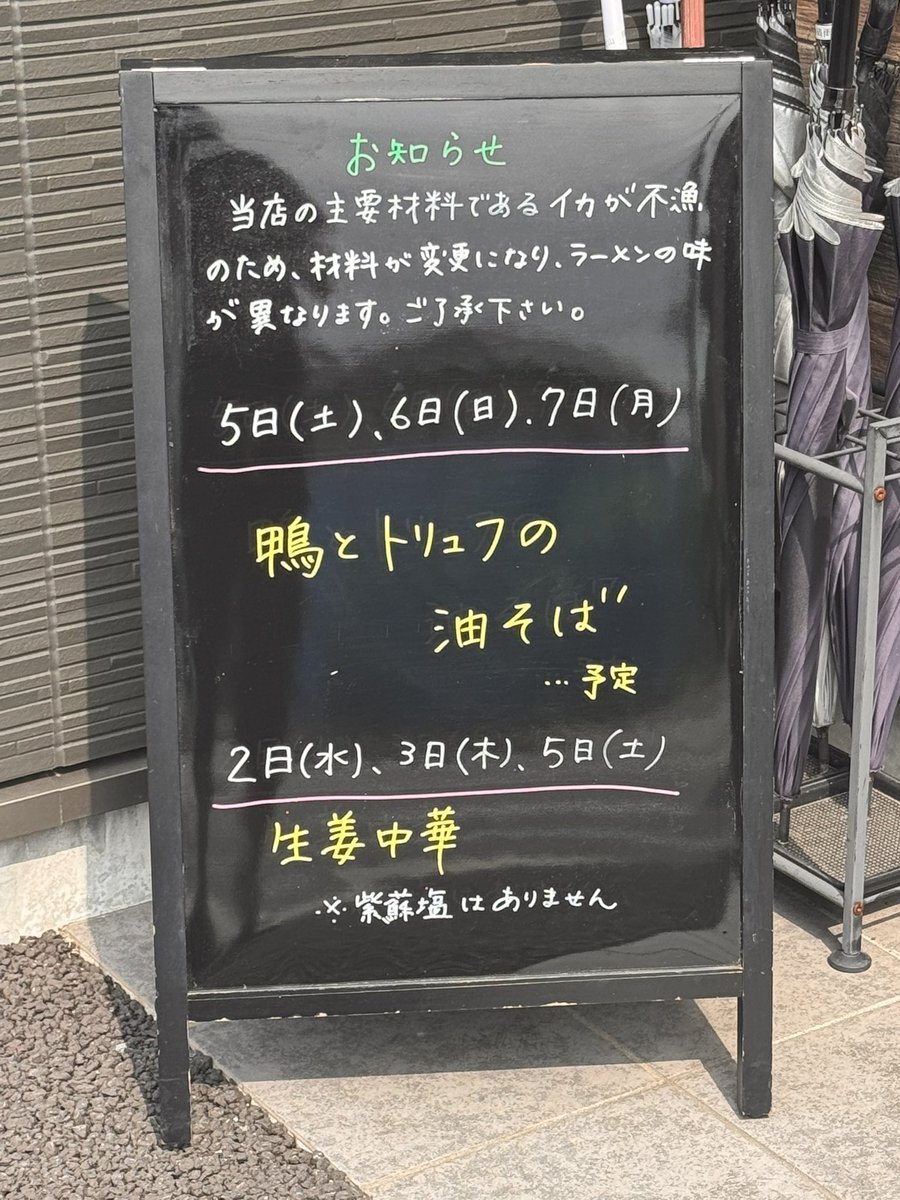 お知らせ
当店の主要材料であるイカが不漁
のため、材料が変更になり、ラーメンの味
が異なります。ご了承下さい。
5日(土)、6日(日)、7日(月)
鴨とトリュフの
油そば
…予定
2日(水)、3日(木)、5日(土)
生姜中華
※紫蘇塩はありません